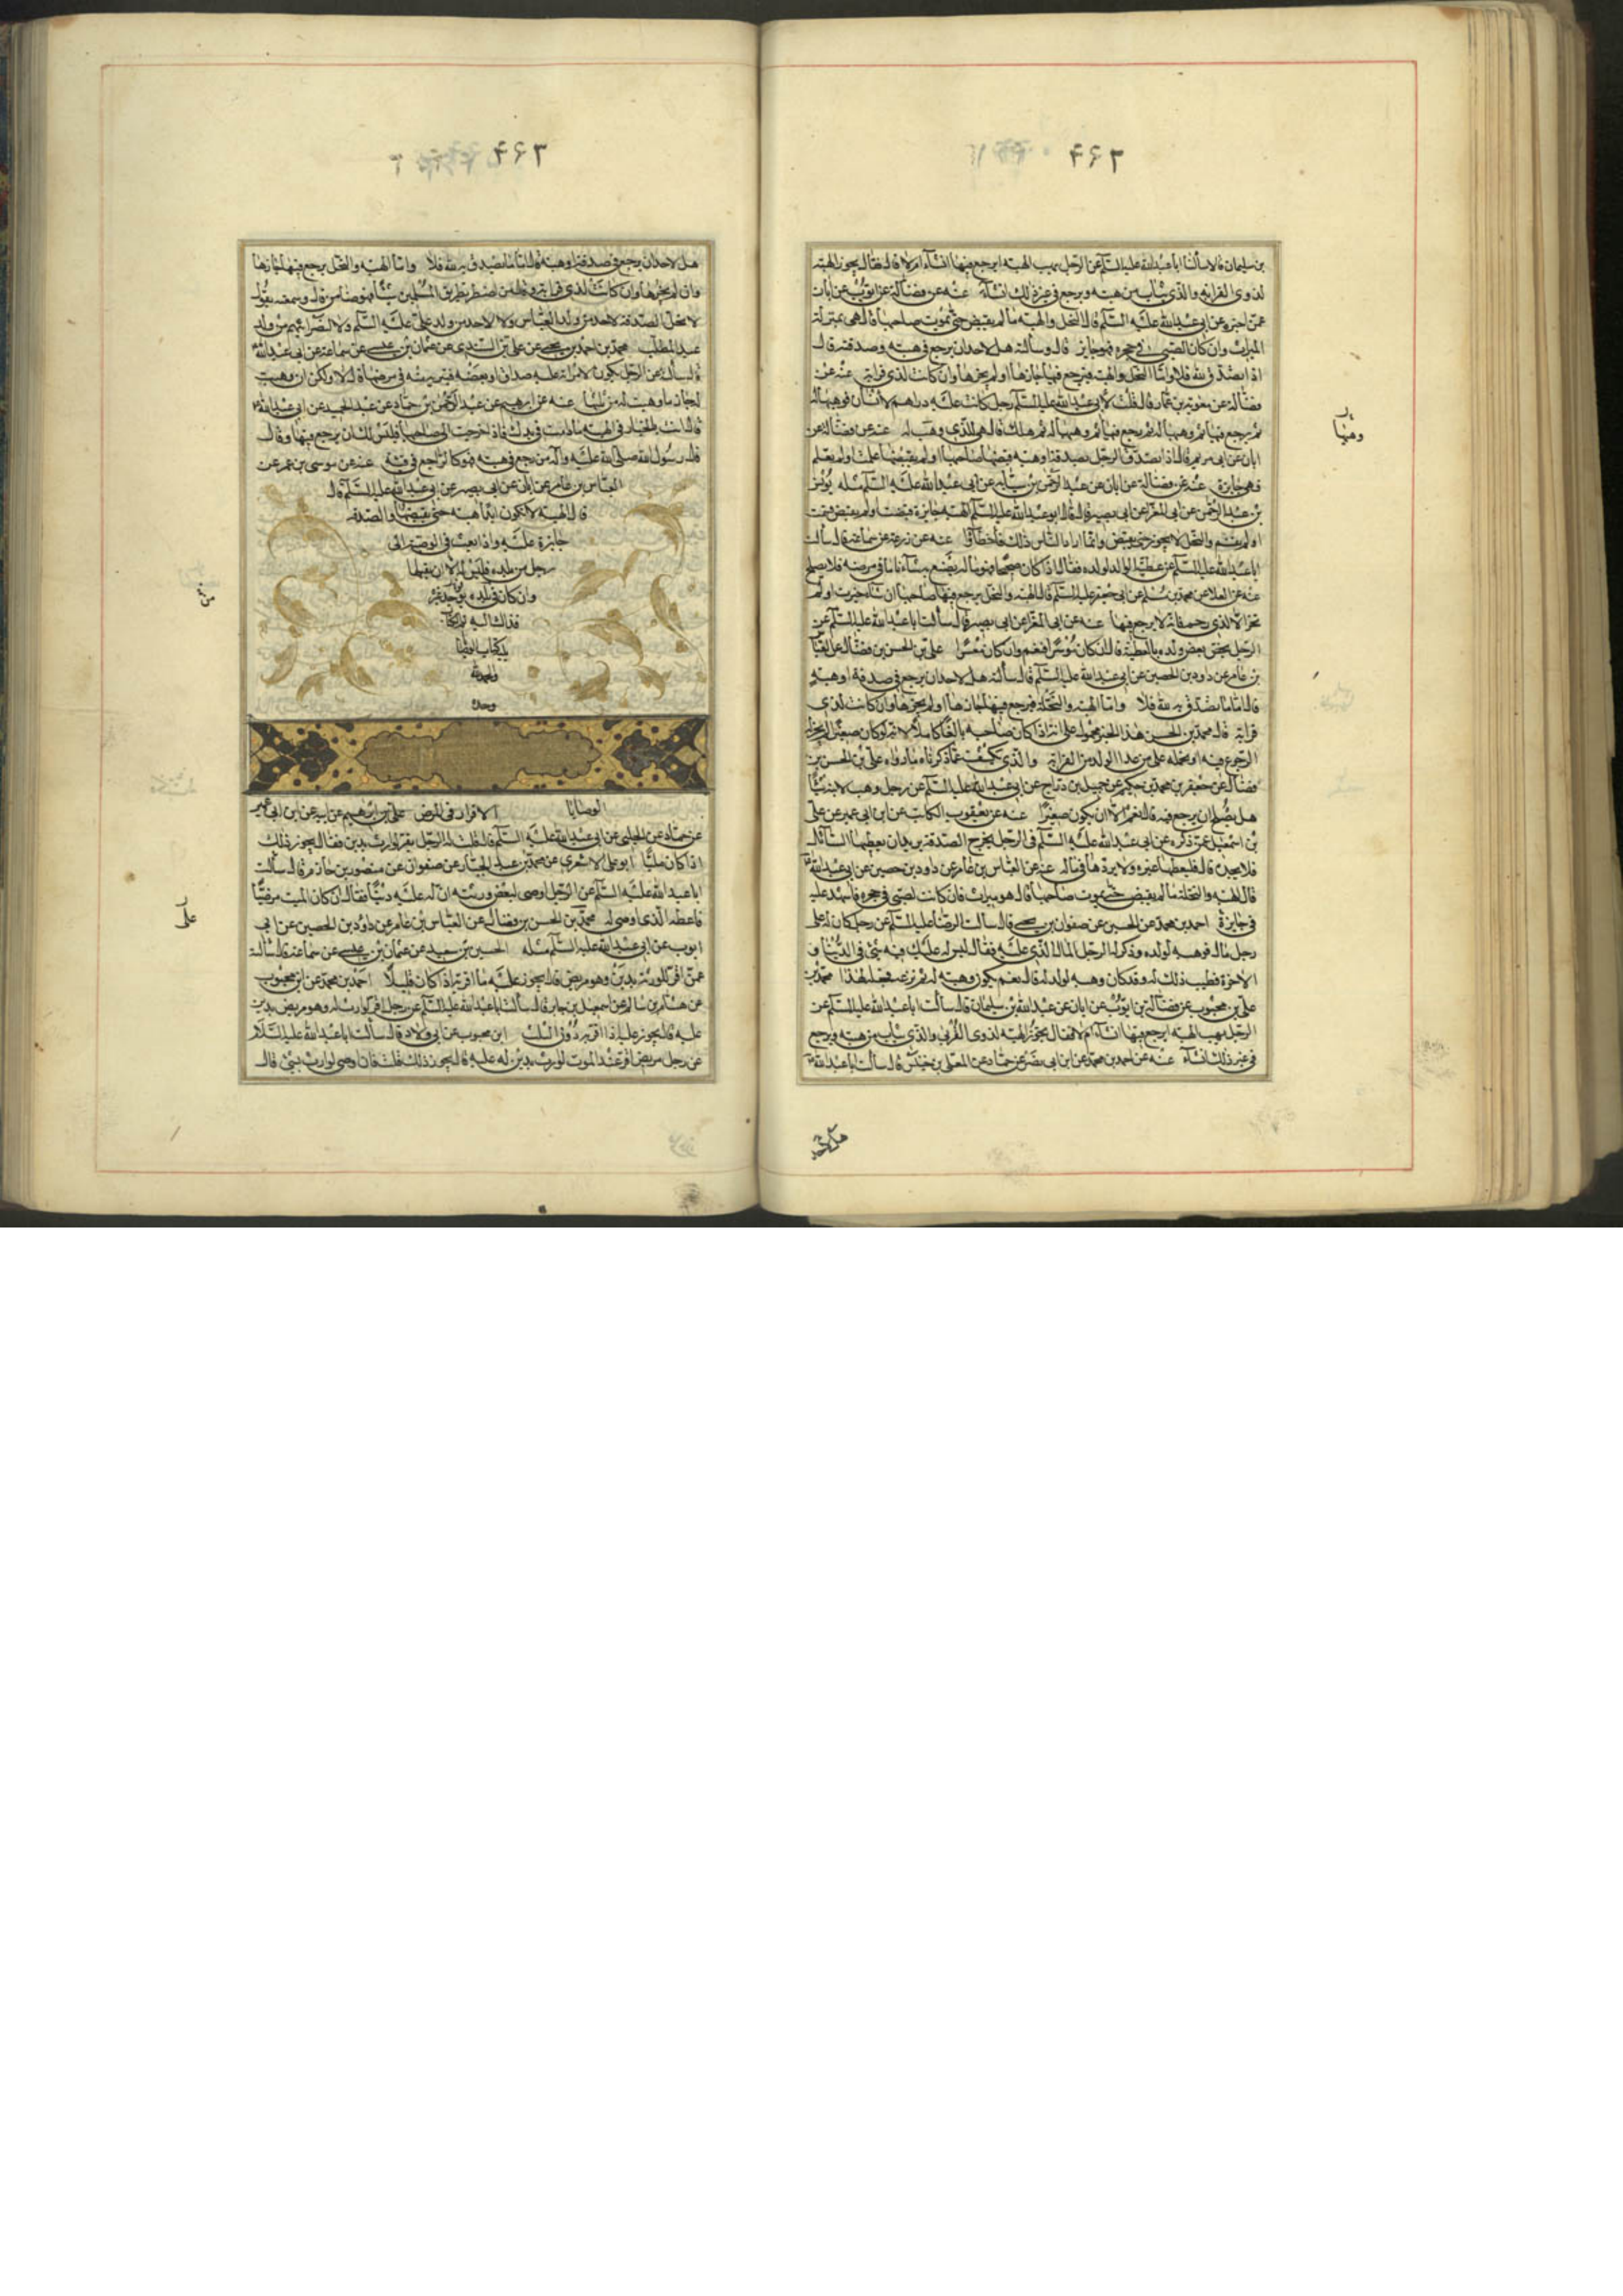 ٤٦٢
بن سليمان قالا سألنا ابا عبدالله عليه السلم عن الرجل يهب الهبة ايرجع فيها انشاء ام لا قال فقال يجوز الهبة
لذوى القرابة والذى يثاب من هبته ويرجع فى غير ذلك انشاء عنه عن فضالة عن ايوب عن ابان
عمن اخبره عن ابى عبدالله عليه السلم قال النحل والهبة ما لم يقبض حتى يموت صاحبها قال هى بمنزلة
الميراث وان كان الصبى فى حجره فهو جايز قال وسألته هل لاحد ان يرجع فى هبته وصدقته قال
اذا تصدق لله فلا واما النحل والهبة فيرجع فيها حازها او لم يحزها وان كانت لذى قرابة عنه عن
فضالة عن معوية بن عمار قال قلت لابى عبدالله عليه السلم رجل كانت عليه دراهم لانسان فوهبها له
ثم رجع فيها ثم وهبها له ثم رجع فيها ثم وهبها له ثم هلك قال هى للذى وهب له عنه عن فضالة عن
ابان عن ابى مريم قال اذا تصدق الرجل بصدقة او هبة قبضها صاحبها او لم يقبضها علمت او لم يعلم
فهى جايزة عنه عن فضالة عن ابان عن عبد الرحمن بن سيابة عن ابى عبدالله عليه السلم مثله يونس
بن عبد الرحمن عن ابى المغرا عن ابى بصير قال قال ابو عبدالله عليه السلم الهبة جايزة قبضت او لم يقبض قسمت
او لم يقسم والنحل لا يجوز حتى يقبض وانما اراد الناس ذلك فاخطأوا عنه عن زرعة عن سماعة قال سألت
ابا عبدالله عليه السلم عن عطية الوالد لولده فقال اذا كان صحيحا فهو ماله يصنع به ما شاء فاما فى مرضه فلا يصلح
عنه عن العلا عن محمد بن مسلم عن ابى جعفر عليه السلم قال الهبة والنحل يرجع فيها صاحبها ان شاء حيزت او لم
تحز الا لذى رحم فانه لا يرجع فيها عنه عن ابى المغرا عن ابى بصير قال سألت ابا عبدالله عليه السلم عن
الرجل يخص بعض ولده بالعطية قال ان كان موسرا فنعم وان كان معسرا فلا على بن الحسن بن فضال عن العباس
بن عامر عن داود بن الحصين عن ابى عبدالله عليه السلم قال سألته هل لاحد ان يرجع فى صدقة او هبة
قال اما ما تصدق به لله فلا واما الهبة والنحلة فيرجع فيها حازها او لم يحزها وان كانت لذى
قرابة قال محمد بن الحسن هذا الخبر محمول على انه اذا كان صاحبه بالغا كاملا لانه لو كان صغيرا لم يجز له
الرجوع فيه او نحمله على من عدا الولد من القرابة والذى يكشف عما ذكرناه ما رواه على بن الحسن بن
فضال عن جعفر بن محمد بن حكيم عن جميل بن دراج عن ابى عبدالله عليه السلم عن رجل وهب لابنه شيئا
هل يصلح ان يرجع فيه قال نعم الا ان يكون صغيرا عنه عن يعقوب الكاتب عن ابن ابى عمير عن على
بن اسمعيل عمن ذكره عن ابى عبدالله عليه السلم فى الرجل يخرج الصدقة يريد ان يعطيها السائل
فلا يجده قال فليعطها غيره ولا يردها فى ماله عنه عن العباس بن عامر عن داود بن حصين عن ابى عبدالله
قال الهبة والنحلة ما لم يقبض حتى يموت صاحبها قال هو ميراث فان كانت لصبى فى حجره فاشهد عليه
فهى جايزة احمد بن محمد عن الحسين عن صفوان بن يحيى قال سألت الرضا عليه السلم عن رجل كان له على
رجل مال فوهبه لولده وذكر له الرجل المال الذى عليه فقال ليس له عليك فيه شئ فى الدنيا و
الاخرة فطيب ذلك له وقد كان وهبه لولد له قال نعم يكون وهبه له ثم نزعه فجعله لهذا محمد بن
على بن محبوب عن فضالة بن ايوب عن ابان عن عبدالله بن سليمان قال سألت ابا عبدالله عليه السلم عن
الرجل يهب الهبة ايرجع فيها ان شاء ام لا فقال يجوز الهبة لذوى القربى والذى يثاب من هبته ويرجع
فى غير ذلك ان شاء عنه عن احمد بن محمد عن ابن ابى نصر عن حماد عن المعلى بن خنيس قال سألت ابا عبدالله
هل لاحد
٤٦٣
هل لاحد ان يرجع فى صدقته او هبته قال اما ما تصدق به لله فلا واما الهبة والنحل يرجع فيها حازها
وان لم يحزها وان كانت لذى قرابة
لا تحل الصدقة لاحد من ولد العباس ولا لاحد من ولد على عليه السلم ولا لنظرائهم من ولد
عبد المطلب محمد بن احمد بن يحيى عن على بن السندى عن عثمان بن عيسى عن سماعة عن ابى عبدالله
قال سألته عن الرجل يكون لامرأته عليه صداق او بعضه فتبريه منه فى مرضها قال لا ولكن ان وهبت
له جاز ما وهبت له من ثلثها عنه عن ابرهيم عن عبد الرحمن بن حماد عن عبد الحميد عن ابى عبدالله
قال انت بالخيار فى الهبة ما دامت فى يدك فاذا خرجت الى صاحبها فليس لك ان يرجع فيها وقال
قال رسول الله صلى الله عليه وآله من رجع فى هبته فهو كالراجع فى قيئه عنه عن موسى بن عمر عن
العباس بن عامر عن ابان عن ابى بصير عن ابى عبدالله عليه السلم قال
قال الهبة لا تكون ابدا هبة حتى يقبضها والصدقة
جايزة عليه واذا بعث فى الوصية الى
رجل من بلده فليس له الا ان يقبلها
وان كان فى بلده يوجد غيره
فذاك اليه تم كتاب
والحمد لله
وحده
الوصايا الاقرار فى المرض على بن ابرهيم عن ابيه عن ابن ابى عمير
عن حماد عن الحلبى عن ابى عبدالله عليه السلم قال قلت له الرجل يقر لوارث بدين فقال يجوز ذلك
اذا كان مليا ابو على الاشعرى عن محمد بن عبد الجبار عن صفوان عن منصور بن حازم قال سألت
ابا عبدالله عليه السلم عن الرجل اوصى لبعض ورثته ان له عليه دينا فقال ان كان الميت مرضيا
فاعطه الذى اوصى له محمد بن الحسن بن فضال عن العباس بن عامر عن داود بن الحصين عن ابى
ايوب عن ابى عبدالله عليه السلم مثله الحسين بن سعيد عن عثمان بن عيسى عن سماعة قال سألته
عمن اقر للورثة بدين وهو مريض قال يجوز عليه ما اقر به اذا كان قليلا احمد بن محمد عن ابن محبوب
عن هشام بن سالم عن اسمعيل بن جابر قال سألت ابا عبدالله عليه السلم عن رجل اقر لوارث له وهو مريض بدين
عليه قال يجوز عليه اذا اقر به دون الثلث ابن محبوب عن ابى ولاد قال سألت ابا عبدالله عليه السلام
عن رجل مريض اقر عند الموت لوارث بدين له عليه قال يجوز ذلك قلت فان اوصى لوارث بشئ قال